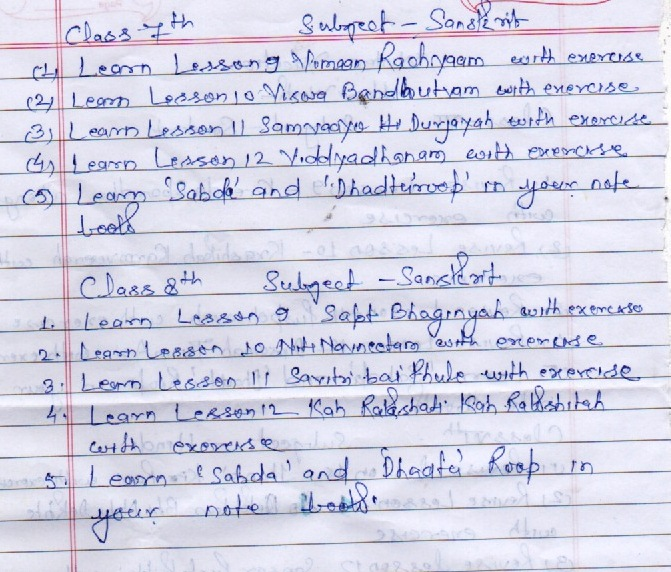 Class 7th Subject - Sanskrit
(1) Learn Lesson 9 Vimaan Rachyaam with exercise
(2) Learn Lesson 10 Viswa Bandhutvam with exercise
(3) Learn Lesson 11 Samvaayo Hi Durjayah with exercise
(4) Learn Lesson 12 Viddyadhanam with exercise
(5) Learn 'Sabda' and 'Dhadturoop' in your note
book
Class 8th Subject - Sanskrit
1. Learn Lesson 9 Sapt Bhaginyah with exercise
2. Learn Lesson 10 Niti Navneetam with exercise
3. Learn Lesson 11 Savitri bai Phule with exercise
4. Learn Lesson 12 Kah Rakshati Kah Rakshitah
with exercise
5. Learn 'Sabda' and Dhadtu Roop in
your note book.